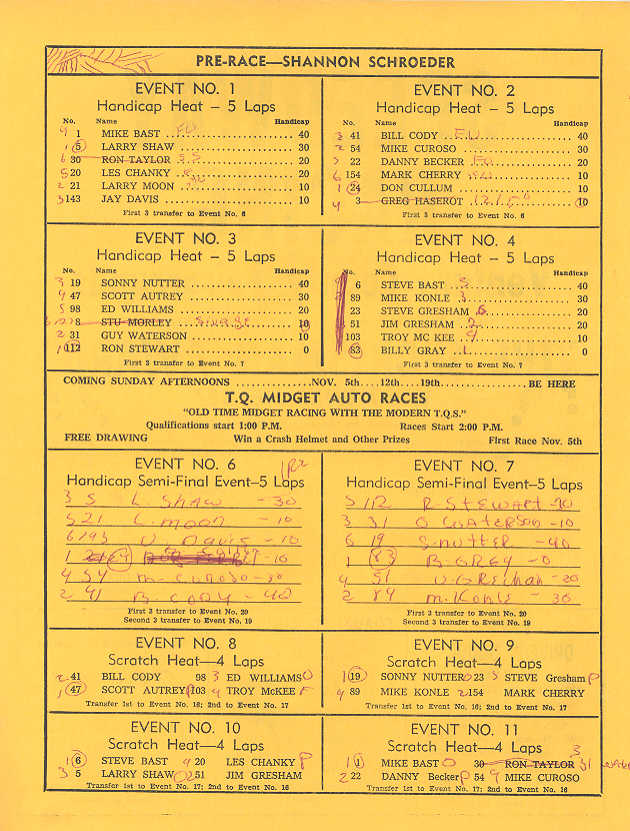 PRE-RACE—SHANNON SCHROEDER
EVENT NO. 1
Handicap Heat – 5 Laps
No. Name Handicap
9 1 MIKE BAST ........ 40
1 5 LARRY SHAW ........ 30
6 30 RON TAYLOR ........ 20
5 20 LES CHANKY ........ 20
2 21 LARRY MOON ........ 10
3 143 JAY DAVIS ........ 10
First 3 transfer to Event No. 6
EVENT NO. 2
Handicap Heat – 5 Laps
No. Name Handicap
3 41 BILL CODY ........ 40
2 54 MIKE CUROSO ........ 30
5 22 DANNY BECKER ........ 20
6 154 MARK CHERRY ........ 10
1 24 DON CULLUM ........ 10
4 3 GREG HASEROT ........ 10
First 3 transfer to Event No. 6
EVENT NO. 3
Handicap Heat – 5 Laps
No. Name Handicap
3 19 SONNY NUTTER ........ 40
4 47 SCOTT AUTREY ........ 30
5 98 ED WILLIAMS ........ 20
8 STU MORLEY ........ 10
2 31 GUY WATERSON ........ 10
1 112 RON STEWART ........ 0
First 3 transfer to Event No. 7
EVENT NO. 4
Handicap Heat – 5 Laps
No. Name Handicap
6 STEVE BAST ........ 40
89 MIKE KONLE 3 ........ 30
23 STEVE GRESHAM 6 ........ 20
51 JIM GRESHAM 2 ........ 20
103 TROY MC KEE 4 ........ 10
83 BILLY GRAY 1 ........ 0
First 3 transfer to Event No. 7
COMING SUNDAY AFTERNOONS ........NOV. 5th....12th....19th........BE HERE
T.Q. MIDGET AUTO RACES
"OLD TIME MIDGET RACING WITH THE MODERN T.Q.S."
Qualifications start 1:00 P.M. Races Start 2:00 P.M.
FREE DRAWING Win a Crash Helmet and Other Prizes First Race Nov. 5th
EVENT NO. 6
Handicap Semi-Final Event–5 Laps
3 5 L. SHAW – 30
5 21 L. MOON – 10
J. DAVIS – 10
1 – 10
4 54 M. CUROSO – 30
2 41 B. CODY – 40
First 3 transfer to Event No. 20
Second 3 transfer to Event No. 19
EVENT NO. 7
Handicap Semi-Final Event–5 Laps
5 112 R STEWART
3 31 G WATERSON – 10
6 19 S. NUTTER – 40
1 83 B. GREY – 0
4 51 J. GRESHAM – 20
2 89 M. KONLE – 30
First 3 transfer to Event No. 20
Second 3 transfer to Event No. 19
EVENT NO. 8
Scratch Heat—4 Laps
2 41 BILL CODY 98 3 ED WILLIAMS O
1 47 SCOTT AUTREY P 103 4 TROY McKEE F
Transfer 1st to Event No. 16; 2nd to Event No. 17
EVENT NO. 9
Scratch Heat—4 Laps
1 19 SONNY NUTTER O 23 3 STEVE Gresham P
4 89 MIKE KONLE 2 154 MARK CHERRY
Transfer 1st to Event No. 16; 2nd to Event No. 17
EVENT NO. 10
Scratch Heat—4 Laps
1 6 STEVE BAST 4 20 LES CHANKY P
3 5 LARRY SHAW O 2 51 JIM GRESHAM
Transfer 1st to Event No. 17; 2nd to Event No. 16
EVENT NO. 11
Scratch Heat—4 Laps
1 1 MIKE BAST O 30 RON TAYLOR 3 31
2 22 DANNY Becker P 54 4 MIKE CUROSO
Transfer 1st to Event No. 17; 2nd to Event No. 16